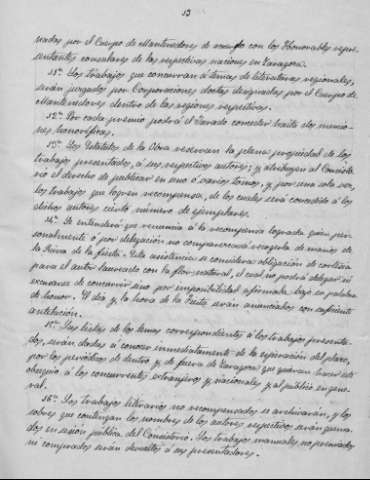 13
nados por el Cuerpo de Mantenedores de acuerdo con los Honorables repre-
sentantes consulares de las respectivas naciones en Zaragoza.
11ª. Los trabajos que concurran á temas de literaturas regionales,
serán juzgados por Corporaciones doctas designadas por el Cuerpo de
Mantenedores dentro de las regiones respectivas.
12ª. Por cada premio podrá el Jurado conceder hasta dos mencio-
nes honoríficas.
13ª. Los Estatutos de la Obra reservan la plena propiedad de los
trabajos presentados, á sus respectivos autores; y atribuyen al Consisto-
rio el derecho de publicar en uno ó varios tomos, y por una sola vez,
los trabajos que logren recompensa, de los cuales será concedido á los
dichos autores cierto número de ejemplares.
14ª. Se entenderá que renuncia á la recompensa lograda quien per-
sonalmente ó por delegación no comparezca á recogerla de manos de
la Reina de la fiesta. Esta asistencia se considera obligación de cortesía
para el autor laureado con la flor natural, el cual no podrá delegar ni
excusarse de concurrir sino por imposibilidad afirmada bajo su palabra
de honor. El día y la hora de la Fiesta serán anunciados con suficiente
antelación.
15ª. Las listas de los lemas correspondientes á los trabajos presenta-
dos, serán dadas á conocer inmediatamente de la expiración del plazo,
por los periódicos de dentro y de fuera de Zaragoza que quieran hacer este
obsequio á los concurrentes extranjeros y nacionales y al público en gene-
ral.
16ª. Los trabajos literarios no recompensados se archivarán, y los
sobres que contengan los nombres de los autores respectivos serán quema-
dos en sesión pública del Consistorio. Los trabajos manuales no premiados
ni comprados serán devueltos á sus presentadores.